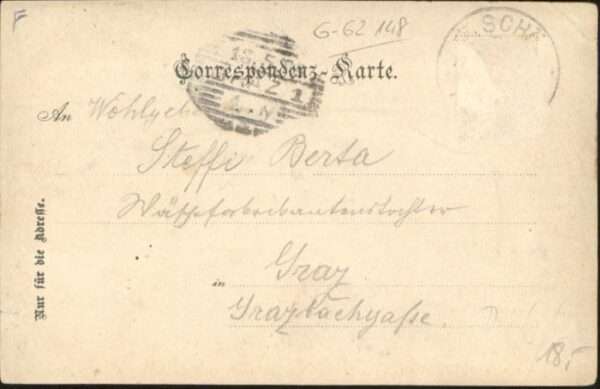 G-62 148
SCH
Correspondenz-Karte.
An Wohlgeb
Steffi Berta
Wäschefabrikantenstochter
in Graz
Grazbachgasse
Nur für die Adresse.
18,-